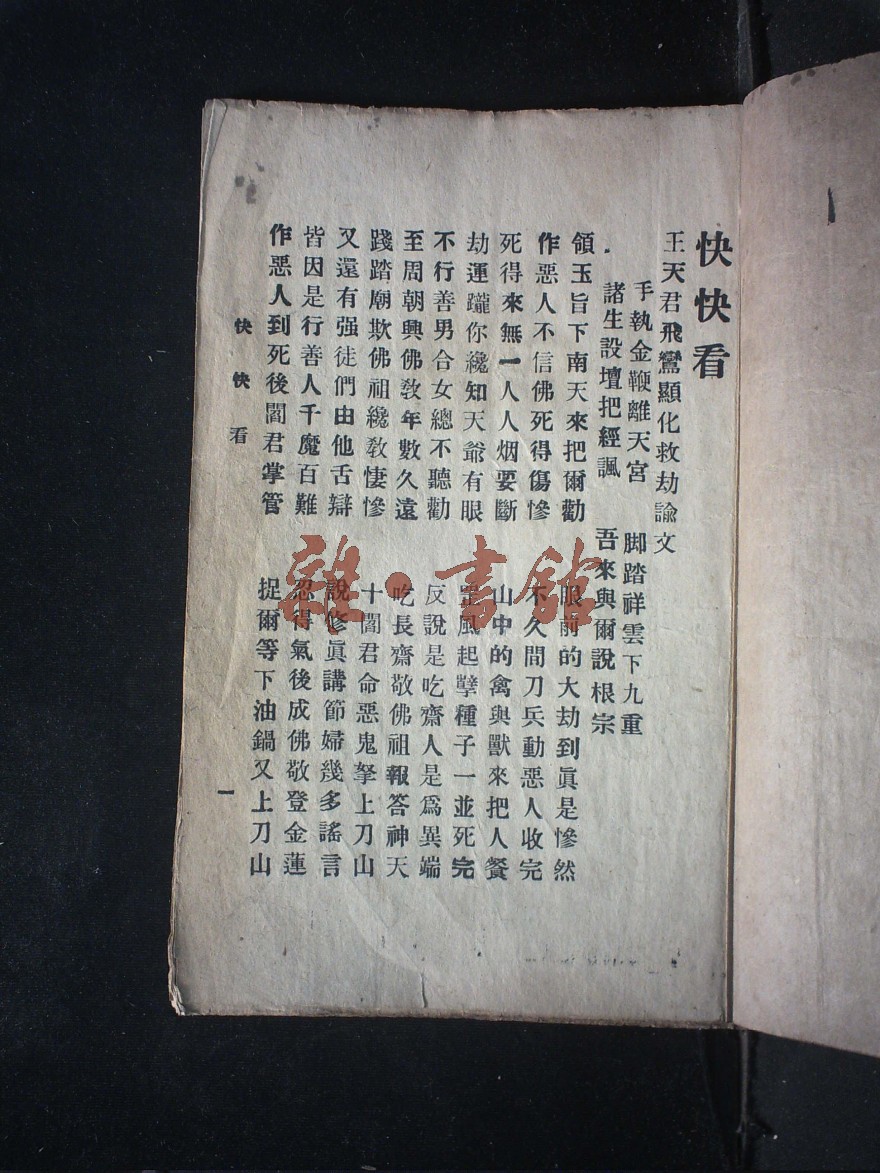 快快看
王天君飛鸞顯化救劫諭文
手執金鞭離天宮　脚踏祥雲下九重
諸生設壇把經諷　吾來與爾說根宗
領玉旨下南天來把爾勸　眼前的大劫到眞是慘然
作惡人不信佛死得傷慘　不久間刀兵動惡人收完
死得來無一人人烟要斷　山中的禽與獸來把人餐
劫運躘你纔知天爺有眼　罡風起孽種子一並死完
不行善男合女總不聽勸　反說是吃齋人是爲異端
至周朝興佛敎年數久遠　吃長齋敬佛祖報答神天
踐踏廟欺佛祖纔敎悽慘　十閻君命惡鬼拏上刀山
又還有强徒們由他舌辯　說修眞講節婦幾多謠言
皆因是行善人千魔百難　忍得氣後成佛敬登金蓮
作惡人到死後閻君掌管　捉爾等下油鍋又上刀山
快快看
一
雜·書館